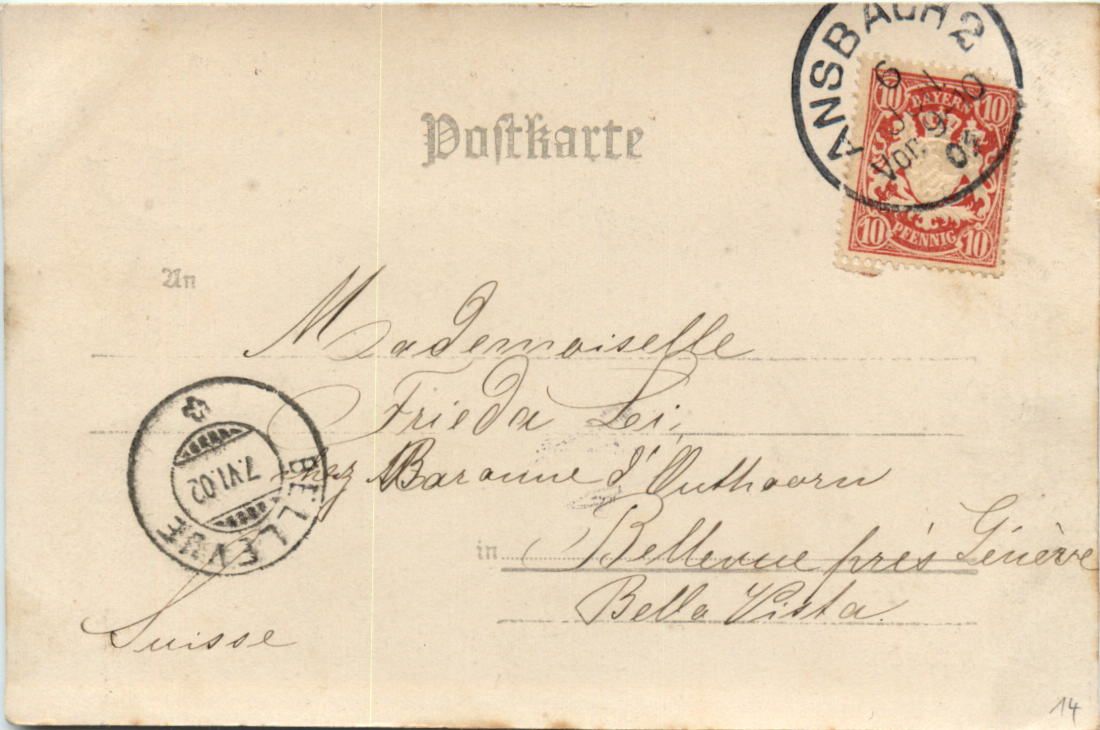 ANSBACH 2
6
Vor. 02
10 BAYERN 10
10 PFENNIG 10
Postkarte
An
Mademoiselle
Frieda Lei,
chez Baronne d'
in Bellevue près Génève
Bella Vista.
Suisse
BELLEVUE
7.VI.02
14